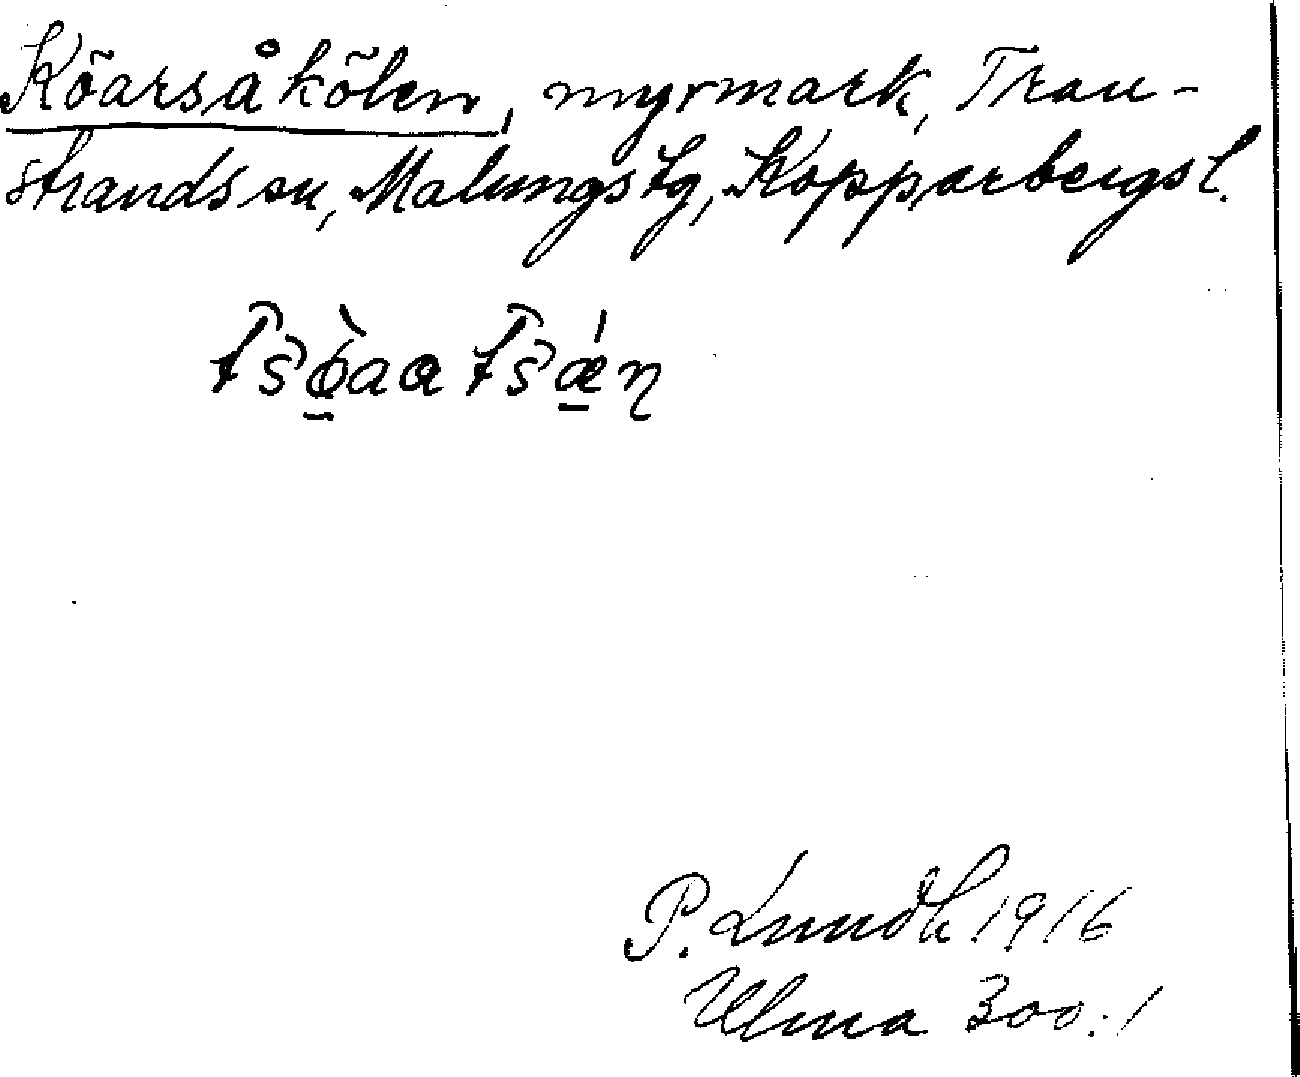 Kõarsåkõlen, myrmark, Tran-
strands sn, Malungs tg, Kopparbergs l.
P. Lundh 1916
Ulma 300:1